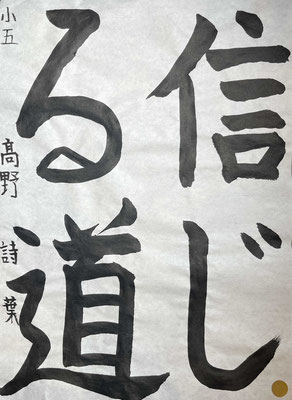 信じ
る道
小五 髙野 詩葉